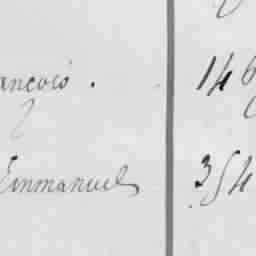 ancois. 146
Emmanuel 354